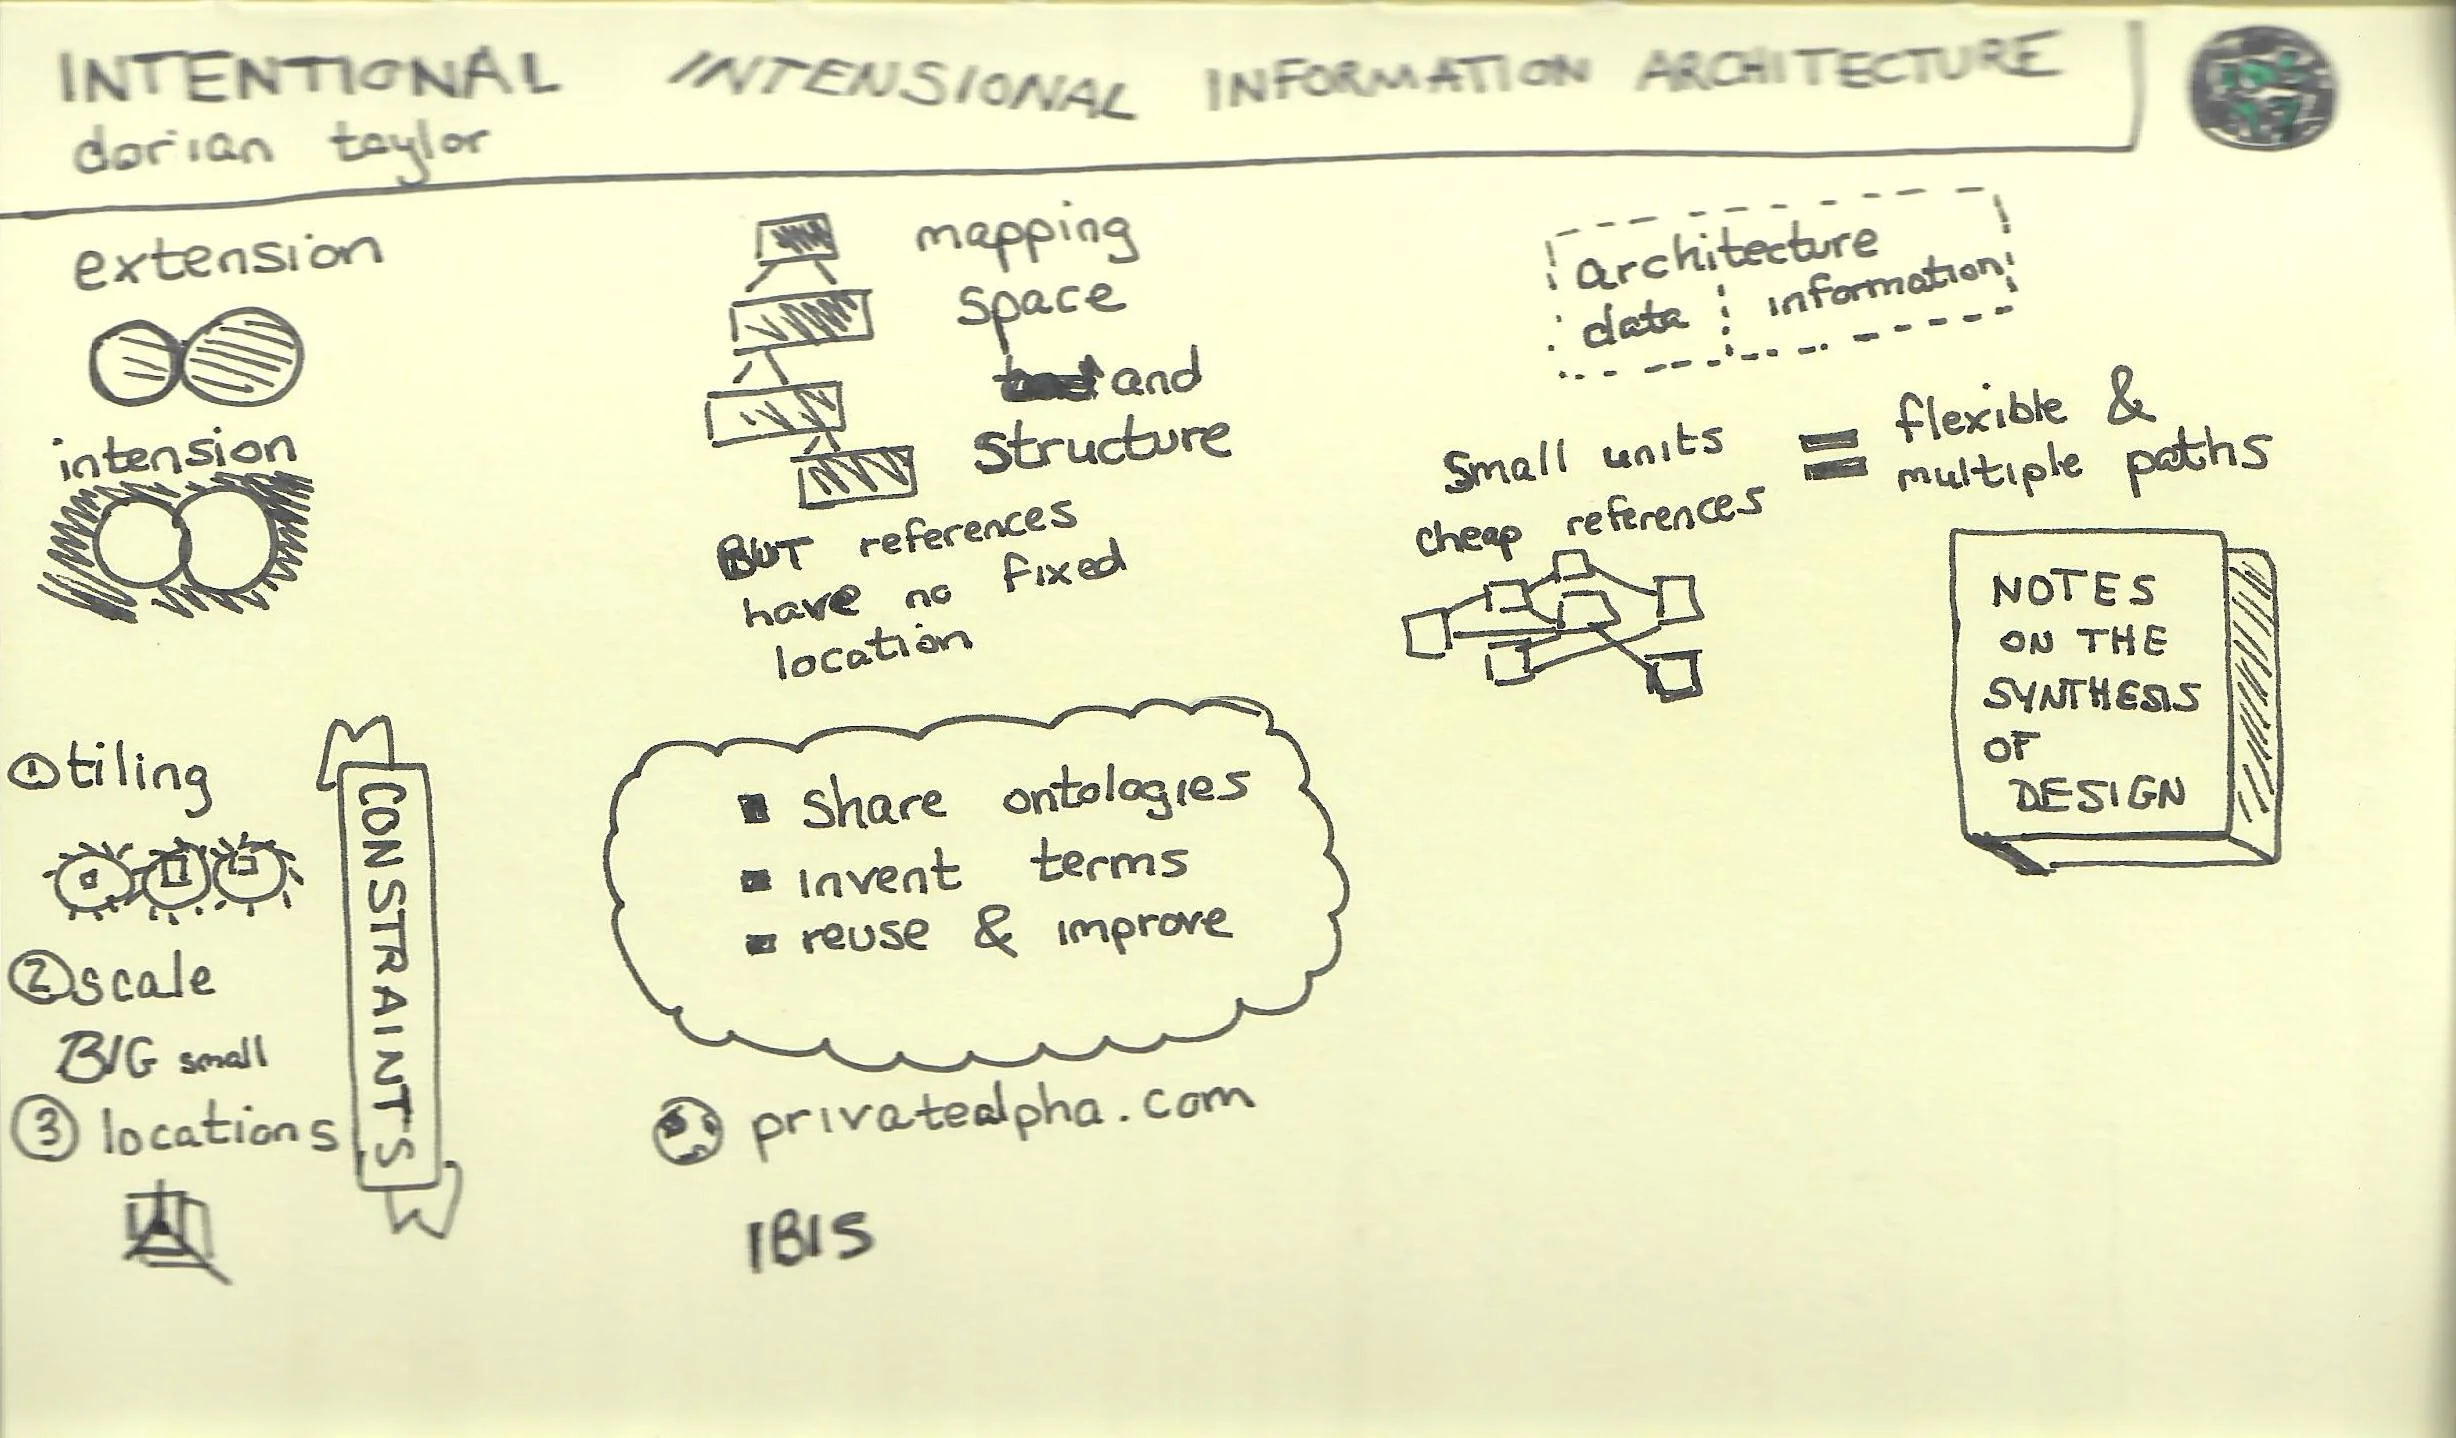 INTENTIONAL INTENSIONAL INFORMATION ARCHITECTURE
dorian taylor
extension
intension
① tiling
② scale
BIG small
③ locations
CONSTRAINTS
mapping
space
and
structure
BUT references
have no fixed
location
■ share ontologies
■ invent terms
■ reuse & improve
privatealpha.com
IBIS
architecture
data information
small units
cheap references
= flexible &
multiple paths
NOTES
ON THE
SYNTHESIS
OF
DESIGN